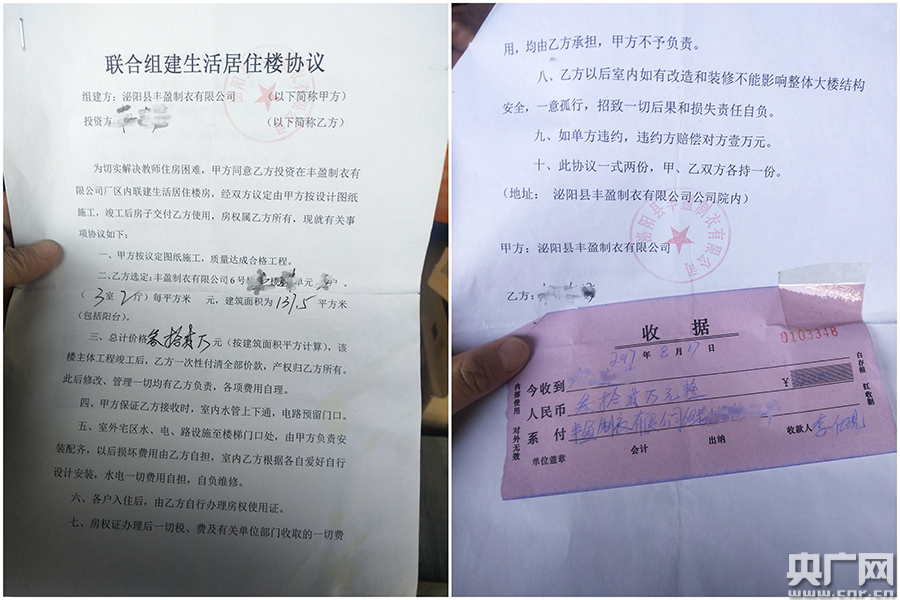 联合组建生活居住楼协议
组建方：泌阳县丰盈制衣有限公司 （以下简称甲方）
投资方 （以下简称乙方）
为切实解决教师住房困难，甲方同意乙方投资在丰盈制衣有
限公司厂区内联建生活居住楼房，经双方议定由甲方按设计图纸
施工，竣工后房子交付乙方使用，房权属乙方所有，现就有关事
项协议如下：
一、甲方按议定图纸施工、质量达成合格工程。
二、乙方选定：丰盈制衣有限公司6号 单元 户
（3室2厅）每平方米 元，建筑面积为137.5平方米
（包括阳台）。
三、总计价格叁拾贰万元（按建筑面积平方计算），该
楼主体工程竣工后，乙方一次性付清全部价款，产权归乙方所有。
此后修改、管理一切均有乙方负责，各项费用自理。
四、甲方保证乙方接收时，室内水管上下通，电路预留门口。
五、室外宅区水、电、路设施至楼梯门口处，由甲方负责安
装配齐，以后损坏费用由乙方自担，室内乙方根据各自爱好自行
设计安装，水电一切费用自担，自负维修。
六、各户入住后，由乙方自行办理房权使用证。
七、房权证办理后一切税、费及有关单位部门收取的一切费
用，均由乙方承担，甲方不予负责。
八、乙方以后室内如有改造和装修不能影响整体大楼结构
安全，一意孤行，招致一切后果和损失责任自负。
九、如单方违约，违约方赔偿对方壹万元。
十、此协议一式两份，甲、乙双方各持一份。
（地址： 泌阳县丰盈制衣有限公司公司院内）
泌阳县丰盈制衣有限公司
甲方：泌阳县丰盈制衣有限公司
乙方：
收 据
0103348
年 8 月 17 日
今收到
¥
人民币 叁拾贰万元整
系 付 丰盈制衣有限公司
单位盖章 会计 出纳 收款人
内部使用
对外无效
白存根
红收据
央广网
www.cnr.cn